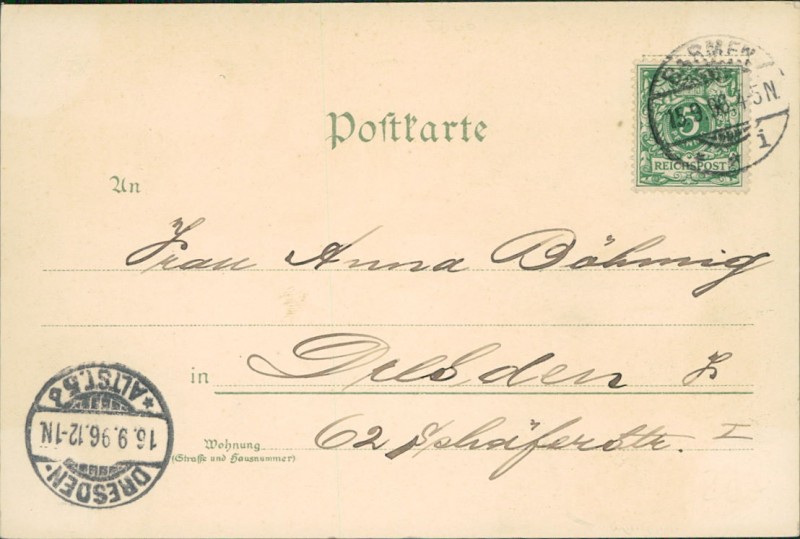 BARMEN 1
15.9.96. 4-5N.
i
5
REICHSPOST
Postkarte
An
Frau Anna Böhmig
in Dresden
Wohnung 62 Schäferstr. I
(Straße und Hausnummer)
DRESDEN-
16.9.96.12-1N
*ALTST.5